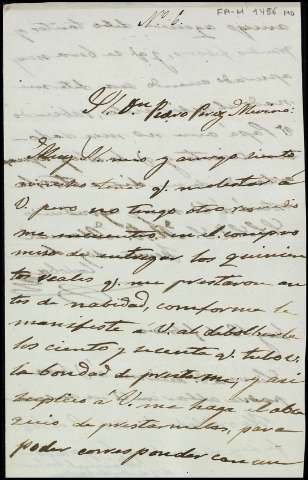 Nº 6.
FA-M 1456
Sr. Dn Pedro Perez Merino:
Muy Sr. mio y amigo siento
q. molestar á
V. pero no tengo otro remedio
me encuentro en el compro
miso de entregar los quinien
tos reales q. me prestaron an
tes de nabidad, conforme le
manifiesté á V. al debolberle
los ciento y sesenta q. tubo V.
la bondad de prestarme; y asi
suplico á V. me haga el obse
quio de prestarmelos, para
poder corresponder con un